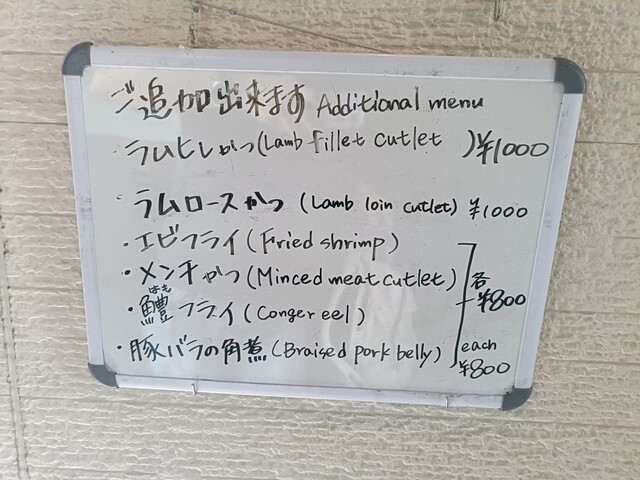 ご追加出来ます Additional menu
・ラムヒレかつ(Lamb fillet cutlet )¥1000
・ラムロースかつ (Lamb loin cutlet) ¥1000
・エビフライ(Fried shrimp)
・メンチかつ(Minced meat cutlet) 各
はも ¥800
・鱧フライ(Conger eel)
・豚バラの角煮(Braised pork belly) each
¥800